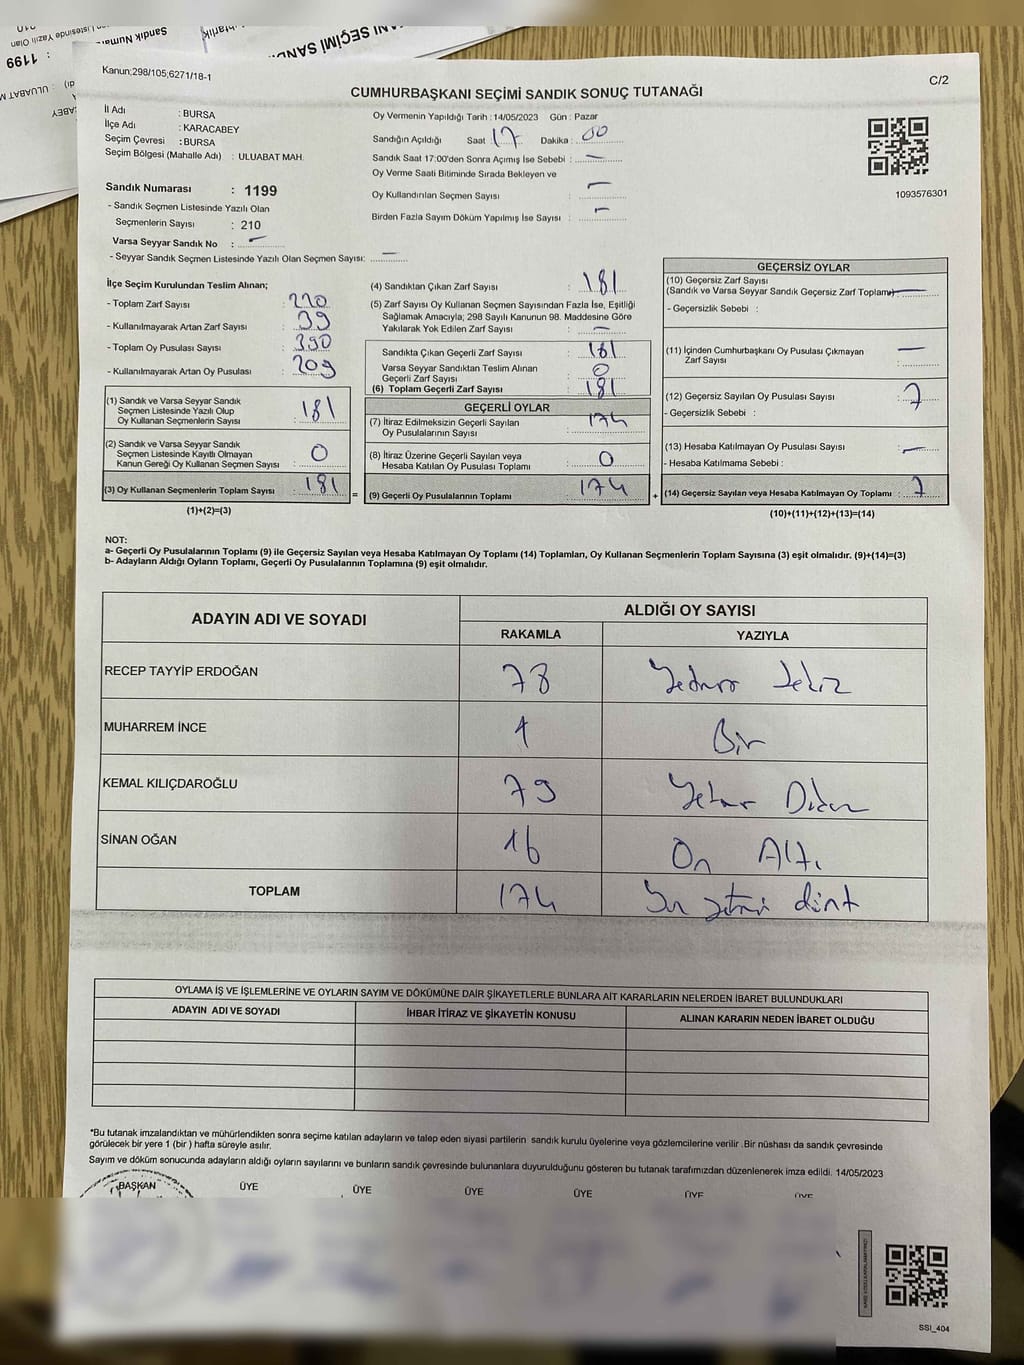 1199
Kanun;298/105;6271/18-1
C/2
CUMHURBAŞKANI SEÇİMİ SANDIK SONUÇ TUTANAĞI
İl Adı : BURSA
İlçe Adı : KARACABEY
Seçim Çevresi : BURSA
Seçim Bölgesi (Mahalle Adı) : ULUABAT MAH.
Oy Vermenin Yapıldığı Tarih : 14/05/2023 Gün : Pazar
Sandığın Açıldığı Saat 17 Dakika : 00
Sandık Saat 17:00'den Sonra Açımış İse Sebebi : —
Oy Verme Saati Bitiminde Sırada Bekleyen ve
Oy Kullandırılan Seçmen Sayısı : —
Birden Fazla Sayım Döküm Yapılmış İse Sayısı : —
1093576301
Sandık Numarası : 1199
- Sandık Seçmen Listesinde Yazılı Olan
Seçmenlerin Sayısı : 210
Varsa Seyyar Sandık No : —
- Seyyar Sandık Seçmen Listesinde Yazılı Olan Seçmen Sayısı: —
İlçe Seçim Kurulundan Teslim Alınan;
- Toplam Zarf Sayısı : 220
- Kullanılmayarak Artan Zarf Sayısı : 39
- Toplam Oy Pusulası Sayısı : 390
- Kullanılmayarak Artan Oy Pusulası : 209
(1) Sandık ve Varsa Seyyar Sandık
Seçmen Listesinde Yazılı Olup
Oy Kullanan Seçmenlerin Sayısı : 181
(2) Sandık ve Varsa Seyyar Sandık
Seçmen Listesinde Kayıtlı Olmayan
Kanun Gereği Oy Kullanan Seçmen Sayısı : 0
(3) Oy Kullanan Seçmenlerin Toplam Sayısı : 181
(1)+(2)=(3)
(4) Sandıktan Çıkan Zarf Sayısı : 181
(5) Zarf Sayısı Oy Kullanan Seçmen Sayısından Fazla İse, Eşitliği
Sağlamak Amacıyla; 298 Sayılı Kanunun 98. Maddesine Göre
Yakılarak Yok Edilen Zarf Sayısı : —
Sandıkta Çıkan Geçerli Zarf Sayısı : 181
Varsa Seyyar Sandıktan Teslim Alınan
Geçerli Zarf Sayısı : 0
(6) Toplam Geçerli Zarf Sayısı : 181
GEÇERLİ OYLAR
(7) İtiraz Edilmeksizin Geçerli Sayılan
Oy Pusulalarının Sayısı : 174
(8) İtiraz Üzerine Geçerli Sayılan veya
Hesaba Katılan Oy Pusulası Toplamı : 0
= (9) Geçerli Oy Pusulalarının Toplamı : 174 +
GEÇERSİZ OYLAR
(10) Geçersiz Zarf Sayısı
(Sandık ve Varsa Seyyar Sandık Geçersiz Zarf Toplamı) —
- Geçersizlik Sebebi :
(11) İçinden Cumhurbaşkanı Oy Pusulası Çıkmayan
Zarf Sayısı : —
(12) Geçersiz Sayılan Oy Pusulası Sayısı : 7
- Geçersizlik Sebebi :
(13) Hesaba Katılmayan Oy Pusulası Sayısı : —
- Hesaba Katılmama Sebebi :
(14) Geçersiz Sayılan veya Hesaba Katılmayan Oy Toplamı : 7
(10)+(11)+(12)+(13)=(14)
NOT:
a- Geçerli Oy Pusulalarının Toplamı (9) ile Geçersiz Sayılan veya Hesaba Katılmayan Oy Toplamı (14) Toplamları, Oy Kullanan Seçmenlerin Toplam Sayısına (3) eşit olmalıdır. (9)+(14)=(3)
b- Adayların Aldığı Oyların Toplamı, Geçerli Oy Pusulalarının Toplamına (9) eşit olmalıdır.
ADAYIN ADI VE SOYADI ALDIĞI OY SAYISI
RAKAMLA YAZIYLA
RECEP TAYYİP ERDOĞAN 78 Yetmiş Sekiz
MUHARREM İNCE 1 Bir
KEMAL KILIÇDAROĞLU 79 Yetmiş Dokuz
SİNAN OĞAN 16 On Altı
TOPLAM 174 Yüz yetmiş dört
OYLAMA İŞ VE İŞLEMLERİNE VE OYLARIN SAYIM VE DÖKÜMÜNE DAİR ŞİKAYETLERLE BUNLARA AİT KARARLARIN NELERDEN İBARET BULUNDUKLARI
ADAYIN ADI VE SOYADI İHBAR İTİRAZ VE ŞİKAYETİN KONUSU ALINAN KARARIN NEDEN İBARET OLDUĞU
*Bu tutanak imzalandıktan ve mühürlendikten sonra seçime katılan adayların ve talep eden siyasi partilerin sandık kurulu üyelerine veya gözlemcilerine verilir .Bir nüshası da sandık çevresinde
görülecek bir yere 1 (bir ) hafta süreyle asılır.
Sayım ve döküm sonucunda adayların aldığı oyların sayılarını ve bunların sandık çevresinde bulunanlara duyurulduğunu gösteren bu tutanak tarafımızdan düzenlenerek imza edildi. 14/05/2023
BAŞKAN ÜYE ÜYE ÜYE ÜYE ÜYE ÜYE
SSI_404